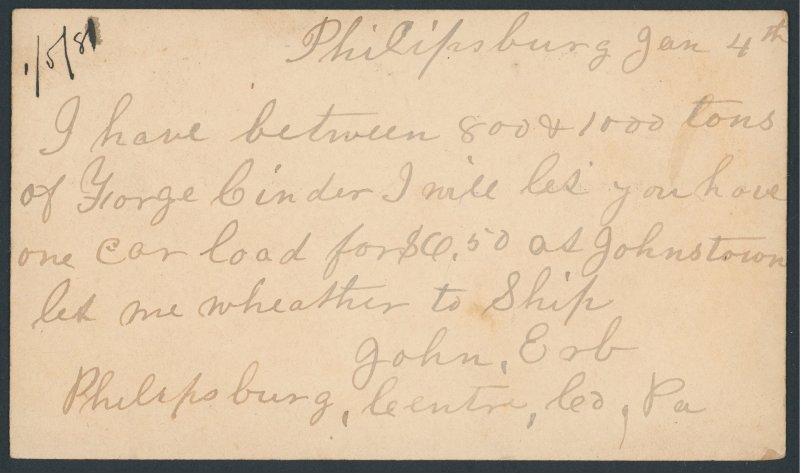 1/5/81
Philipsburg Jan 4th
I have between 800 & 1000 tons
of Forge Cinder I will let you have
one Car load for $6.50 at Johnstown
let me wheather to Ship
John, Erb
Philipsburg, Centre, Co, Pa